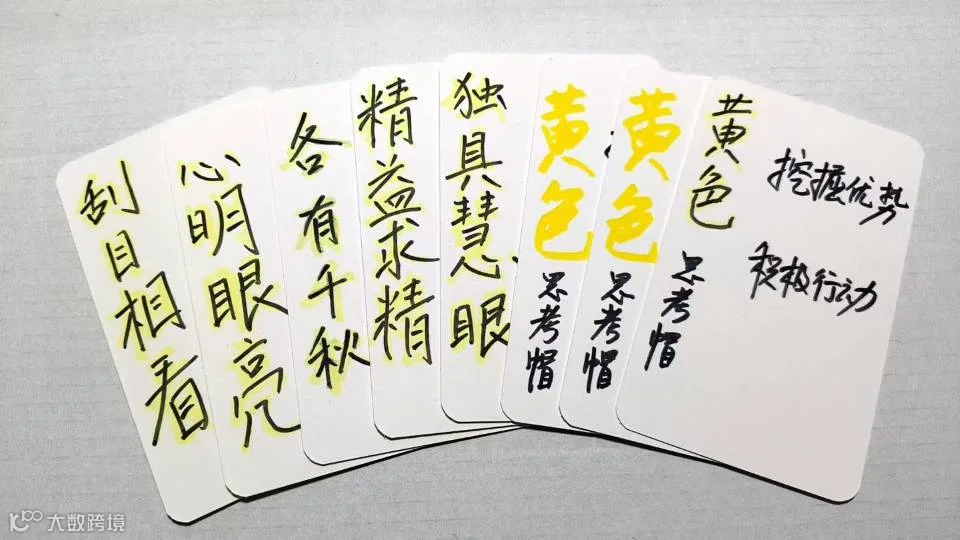 刮目相看
心明眼亮
各有千秋
精益求精
独具慧眼
黄色
思考帽
黄色
思考帽
黄色
思考帽
挖掘优势
积极行动
大数跨境